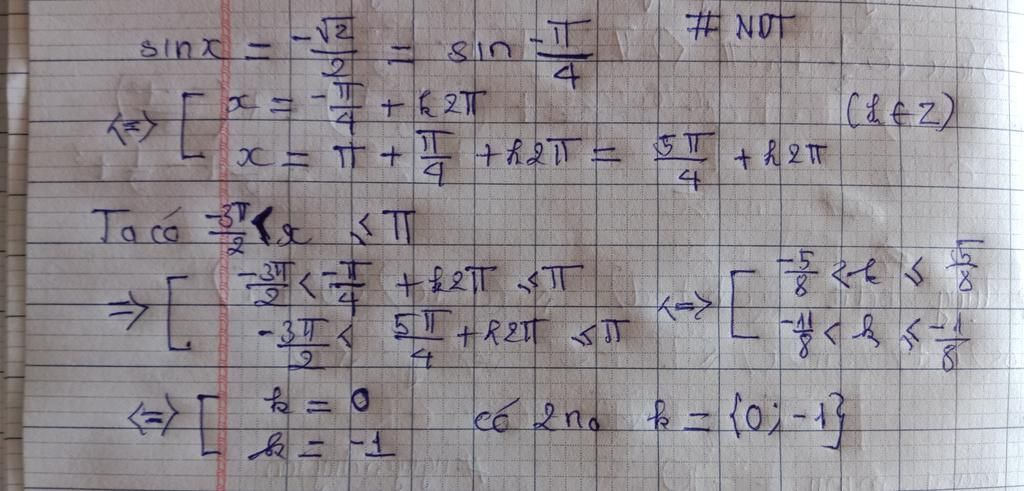 # NDT
sinx = -√2/2 = sin -π/4
<=> [ x = -π/4 + k2π
x = π + π/4 + k2π = 5π/4 + k2π (k ∈ Z)
Ta có -3π/2 < x ≤ π
=> [ -3π/2 < -π/4 + k2π ≤ π <=> [ -5/8 < k ≤ 5/8
-3π/2 < 5π/4 + k2π ≤ π -11/8 < k ≤ -1/8
<=> [ k = 0
k = -1 có 2 no k = {0; -1}